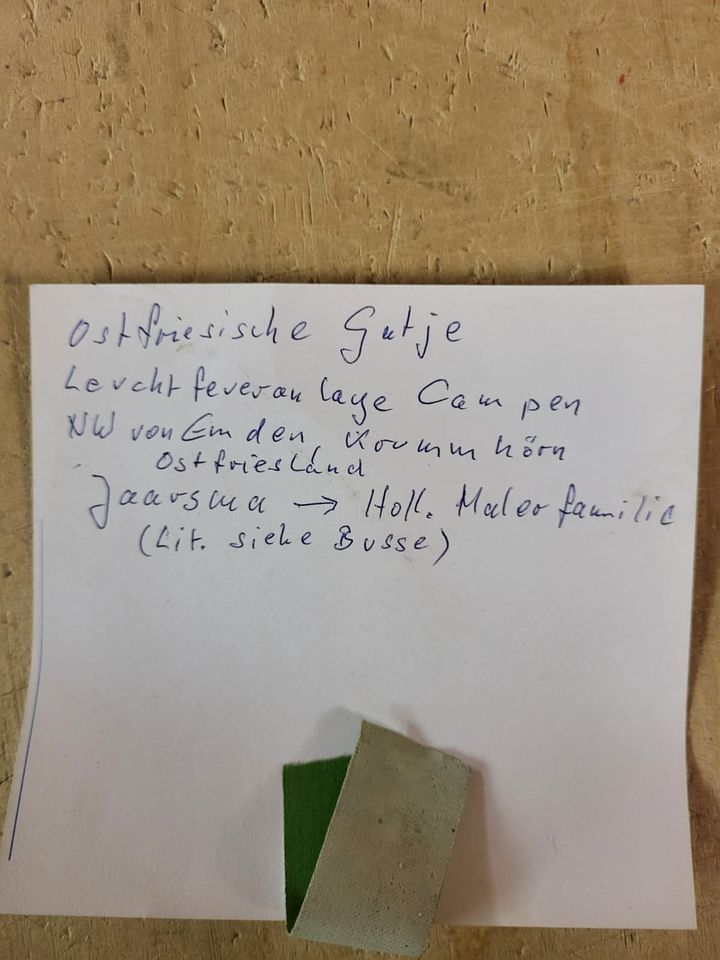 Ostfriesische Gutje
Leuchtfeueranlage Campen
NW von Emden, Krummhörn
Ostfriesland
Jaarsma → Holl. Malerfamilie
(Lit. siehe Busse)